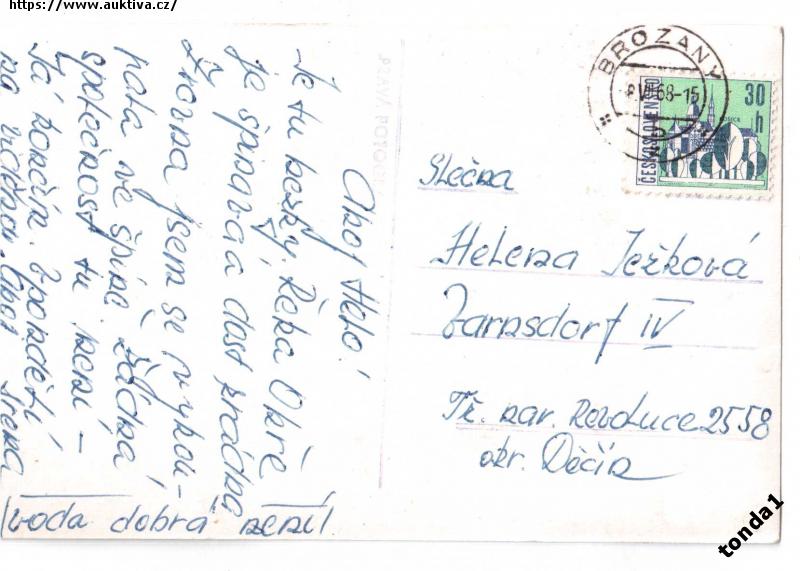 https://www.auktiva.cz/
Ahoj Helo!
Je tu hezky. Řeka Ohře
je špinavá a dost prázdná
Zrovna jsem se vykou-
pala ve špíně. Žádná
společnost tu není -
Já končím. V pondělí
na viděnou. Ahoj Irena
voda dobrá není!
BROZANY
VII 68-15
ČESKOSLOVENSKO
30
h
Slečna
Helena Ježková
Varnsdorf IV
Tř. nar. Revoluce 2558
okr. Děčín
tonda1